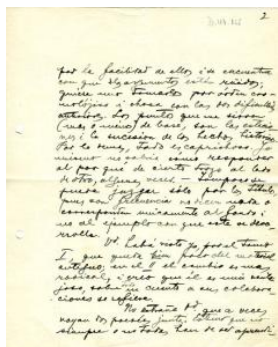 2
por la facilidad de ellos i de encontrar
con que
quiere ser tomados por orden cro-
nológico i choca con las dos dificultades
anteriores. Los puntos que me sirven
(más o menos) de base, son las
i la sucesión de los hechos históricos
Por lo demás, todo es caprichoso. Yo
mismo no sabría como responder
al por que de cierto trozo al lado
de otro, algunas veces — Tampoco se
puede juzgar sólo por los títulos,
pues con frecuencia no dicen nada o
corresponden únicamente al fondo i
no al ejemplo con que este se desa-
rrolla.
Vd. habrá visto ya, por el tomo
I, que queda bien poco del material
antiguo, en el el cambio es mas
radical, i creo que él es mui
en cuanto a sus colabora-
ciones se refiere.
No extrañe Vd. que a veces
vayan dos poesías juntas,
siempre o no todas, han de ser aprendi-